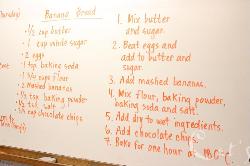 Thursday!
Banana Bread
1/2 cup butter
1 cup whole sugar
2 eggs
1 tsp. baking soda
1 1/2 cups flour
2 Mashed bananas
1/2 tsp. baking powder
1/2 tsp. salt
3/4 cup chocolate chips
1. Mix butter
and sugar.
2. Beat eggs and
add to butter and
sugar.
3. Add mashed bananas.
4. Mix flour, baking powder,
baking soda and salt.
5. Add dry to wet ingredients.
6. Add chocolate chips.
7. Bake for one hour at 180°